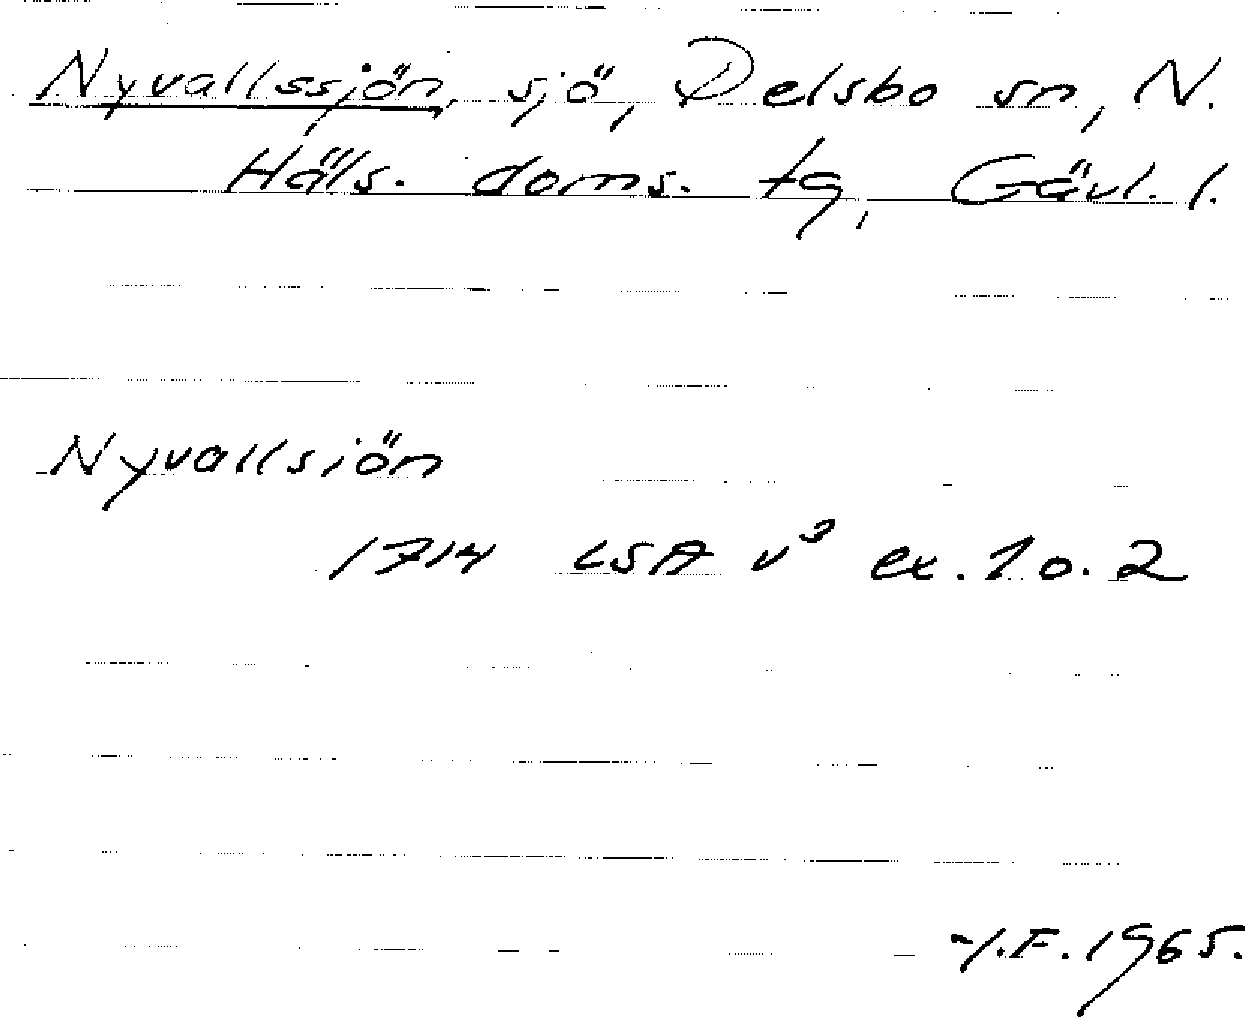 Nyvallssjön, sjö, Delsbo sn, N.
Häls. doms. tg, Gävl. l.
Nyvallsiön
1714 LSA v³ ex. 1 o. 2
F. 1965.